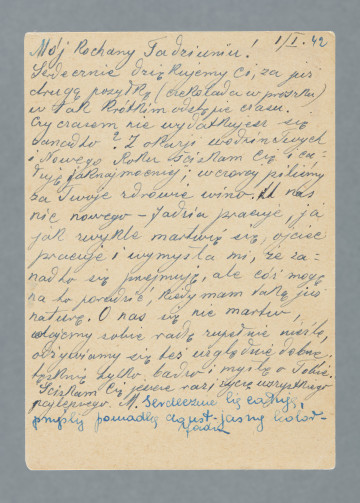 1/I. 42
Mój Kochany Tadziuniu!
Serdecznie dziękujemy Ci, za już
drugą paczkę (czekolada w proszku)
w tak krótkim odstępie czasu.
Czy czasem nie wydatkujesz się
zanadto? Z okazji urodzin Twych
i Nowego Roku ściskam Cię i ca-
łuję jaknajmocniej, wczoraj piliśmy
za Twoje zdrowie wino. U nas
nic nowego – Jadzia pracuje, ja
jak zwykle martwię się, ojciec
pracuje i wymyśla mi, że za-
nadto się przejmuję, ale cóż mogę
na to poradzić, kiedy mam taką już
naturę. O nas się nie martw,
dajemy sobie radę zupełnie nieźle,
odżywiamy się też względnie dobrze,
tylko bądź i myślę o Tobie.
Ściskam Cię jeszcze raz i życzę wszystkiego
najlepszego. M. Serdecznie Cię całuję,
przyślij pomadkę do ust – jasny kolor –
Jadzia